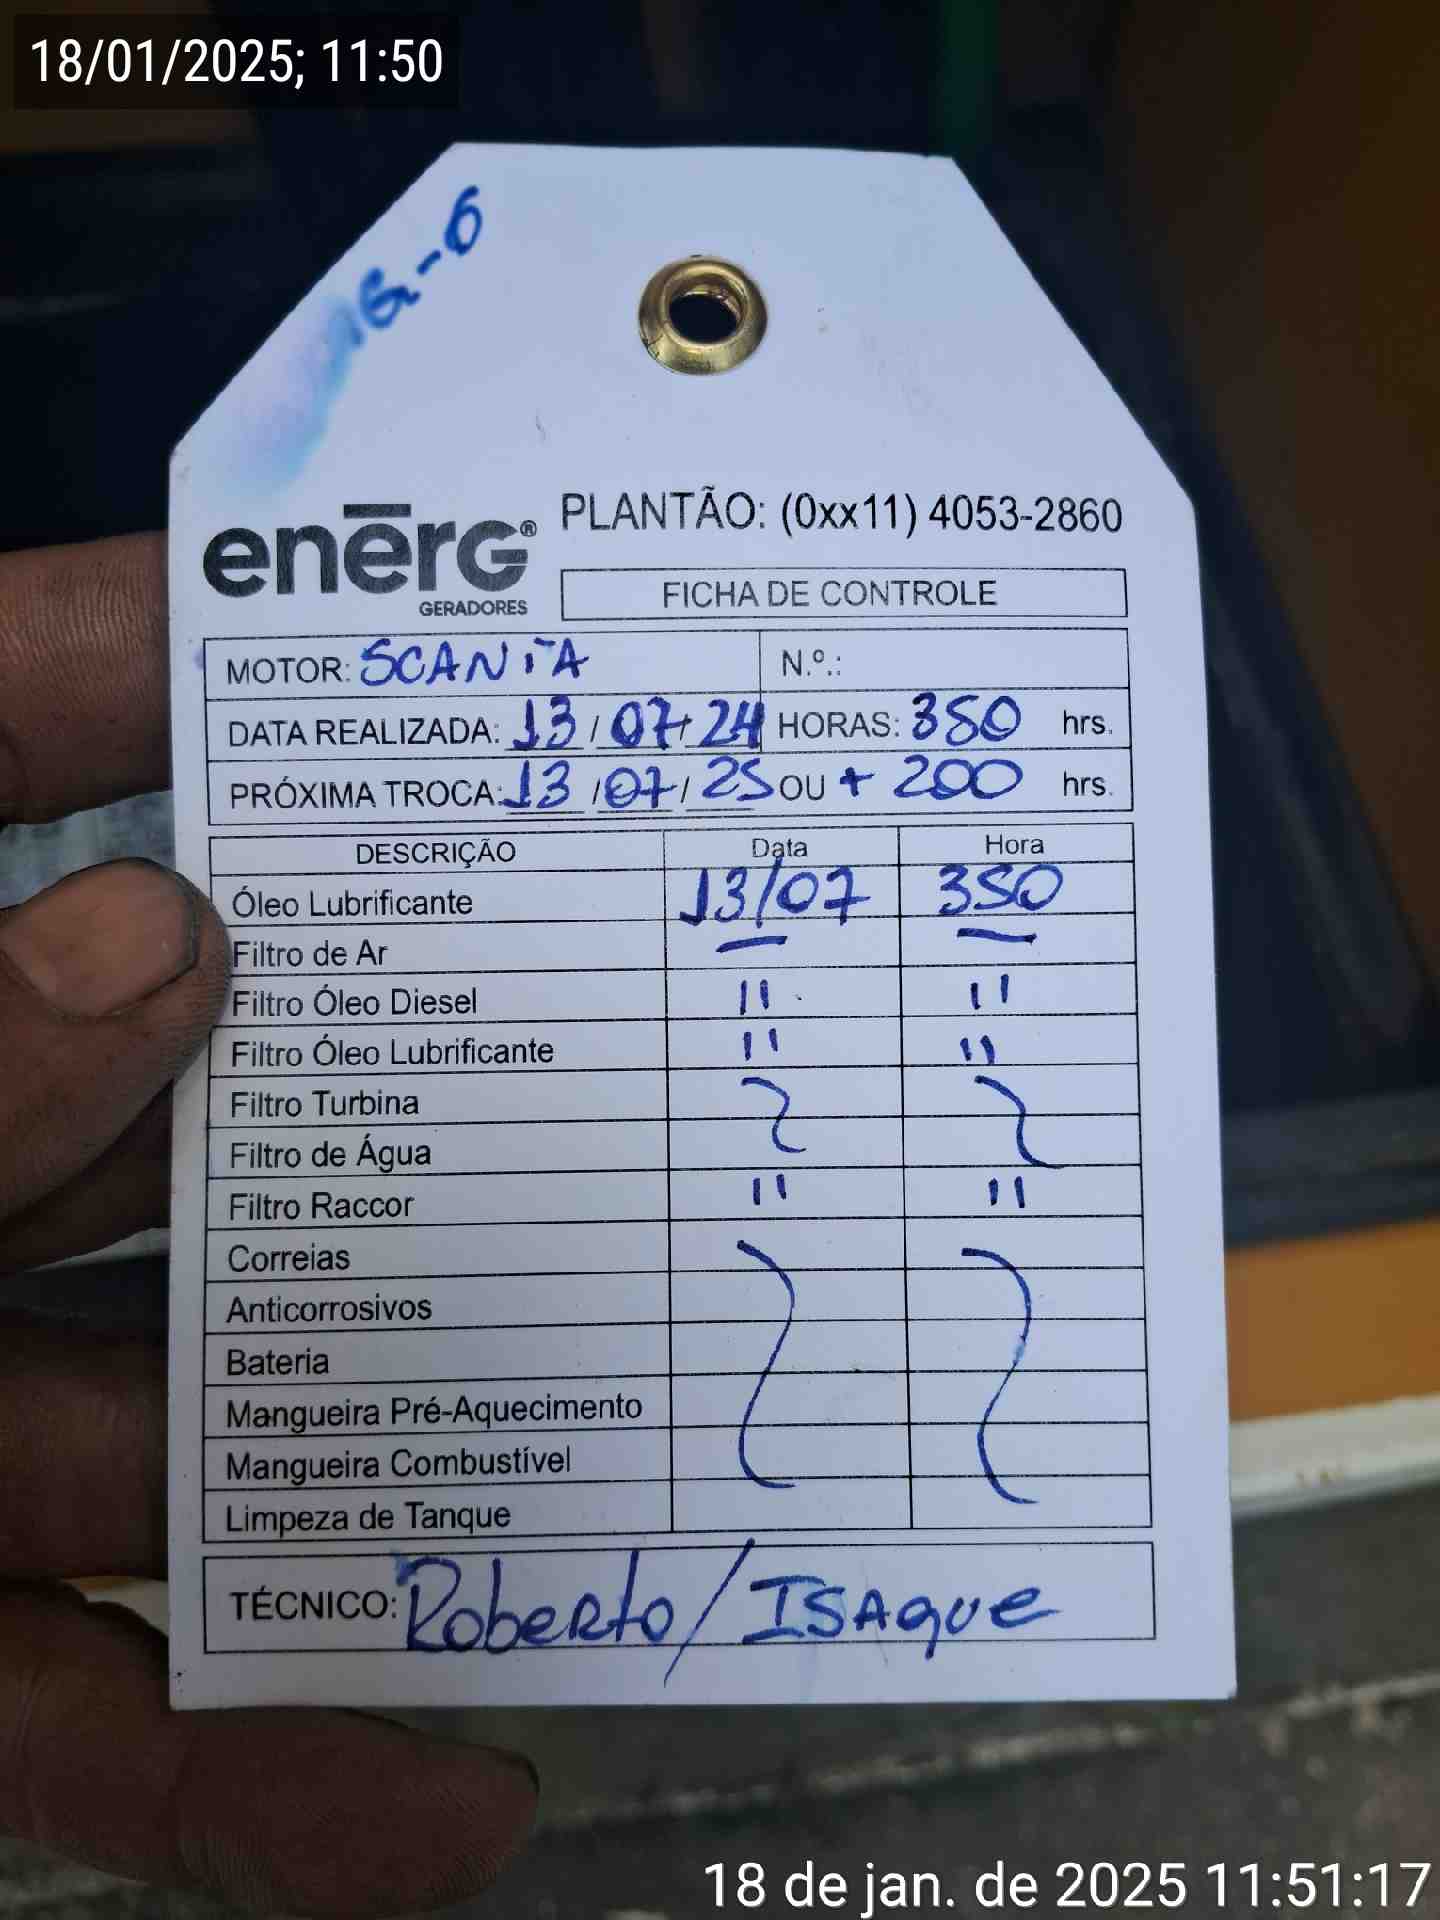 18/01/2025; 11:50
G-6
enērG®
GERADORES
PLANTÃO: (0xx11) 4053-2860
FICHA DE CONTROLE
MOTOR: SCANIA N.º.:
DATA REALIZADA: 13/07/24 HORAS: 350 hrs.
PRÓXIMA TROCA: 13/07/25 OU + 200 hrs.
DESCRIÇÃO Data Hora
Óleo Lubrificante 13/07 350
Filtro de Ar — —
Filtro Óleo Diesel " "
Filtro Óleo Lubrificante " "
Filtro Turbina
Filtro de Água
Filtro Raccor " "
Correias
Anticorrosivos
Bateria
Mangueira Pré-Aquecimento
Mangueira Combustível
Limpeza de Tanque
TÉCNICO: Roberto/ISAque
18 de jan. de 2025 11:51:17